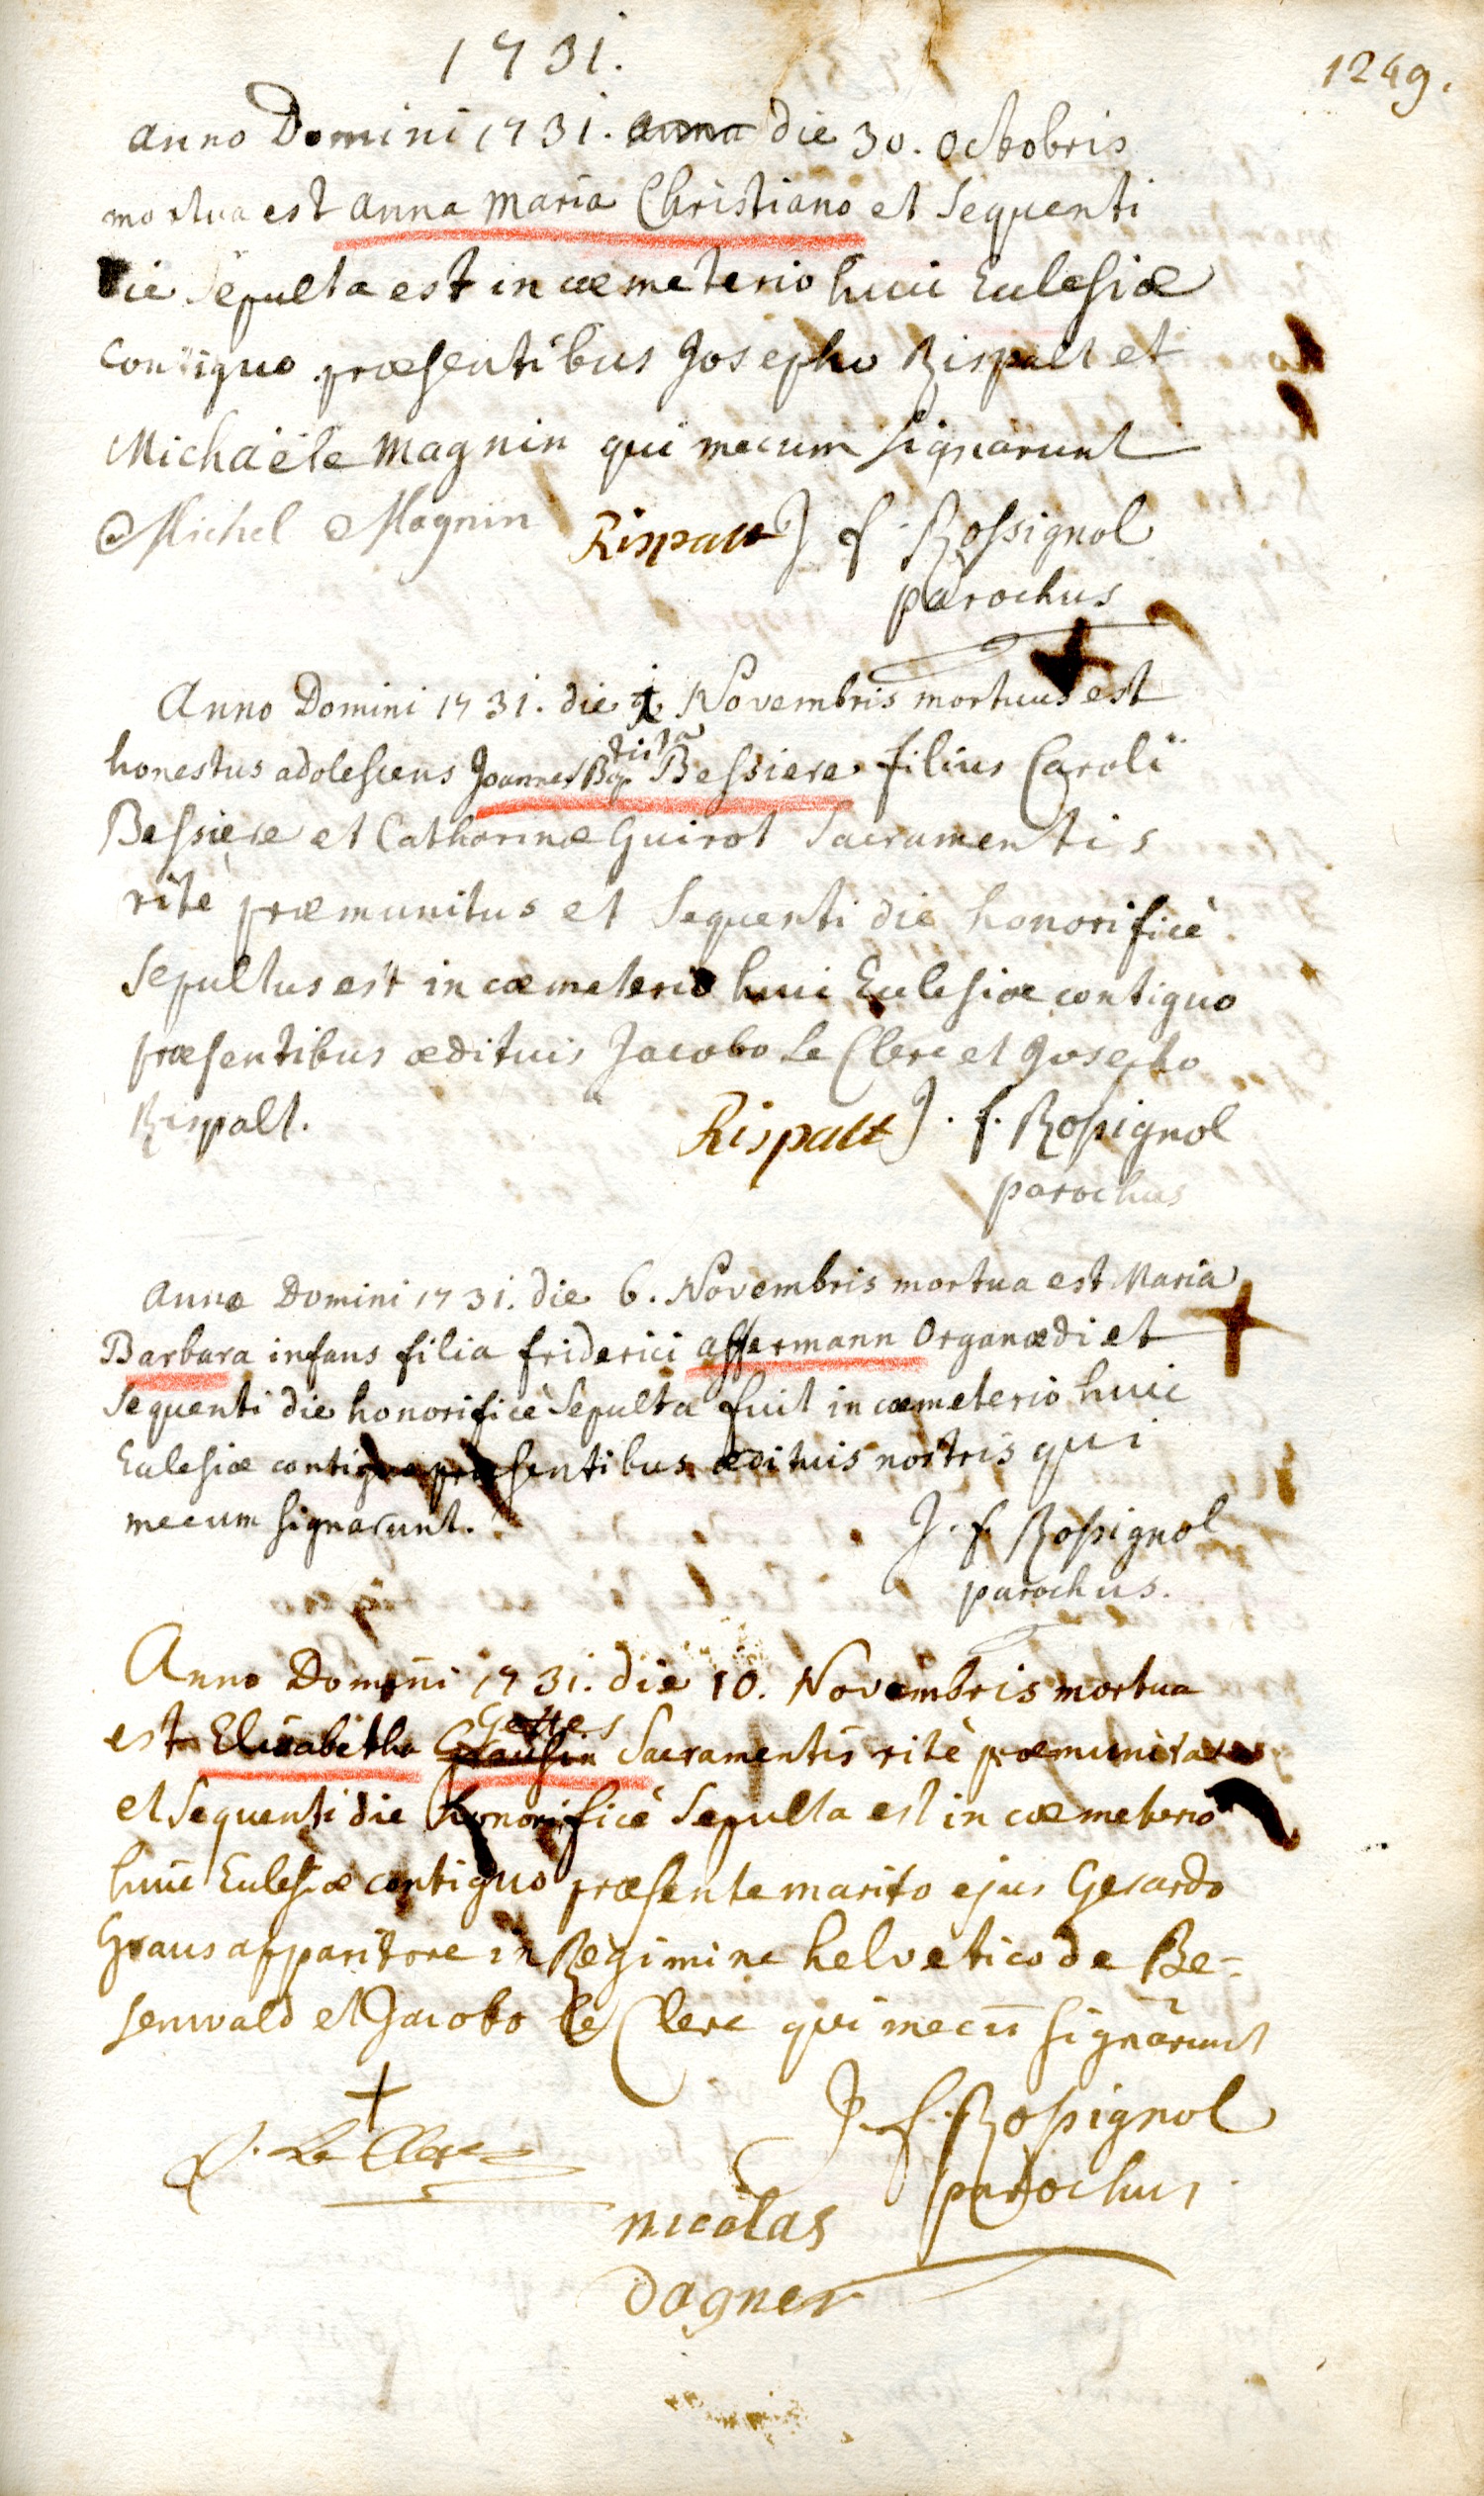 1731.
1249.
anno Domini 1731. anna die 30. octobris
mortua est anna maria Christiano et sequenti
die sepulta est in cœmeterio huic Ecclesiæ
contiguo præsentibus Josepho Rispalt et
Michaële Magnin qui mecum signarunt
Michel Magnin Rispalt J f Rossignol
parochus
Anno Domini 1731. die Novembris mortuus est
honestus adolescens Joannes Baptista Bessiere filius Caroli
Bessiere et Catharinæ Guirot Sacramentis
ritè præmunitus et sequenti die honorificè
sepultus est in cœmeterio huic Ecclesiæ contiguo
præsentibus ædituis Jacobo Le Clerc et Josepho
Rispalt. Rispalt J. f. Rossignol
parochus
Anno Domini 1731. die 6. Novembris mortua est Maria
Barbara infans filia friderici assermann Organædi et
sequenti die honorificè sepulta fuit in cœmeterio huic
Ecclesiæ contiguo præsentibus ædituis nostris qui
mecum signarunt.
J. f. Rossignol
parochus.
Anno Domini 1731. die 10. Novembris mortua
est Elisabetha Sacramentis ritè præmunita
et sequenti die honorificè sepulta est in cœmeterio
huic Ecclesiæ contiguo præsente marito ejus Gerardo
Graus apparitore in Regimine helvetico de Be-
senwald et Jacobo le Clerc qui mecū signârunt
J. f. Rossignol
J. Le Clerc
parochus.
nicolas
dagner